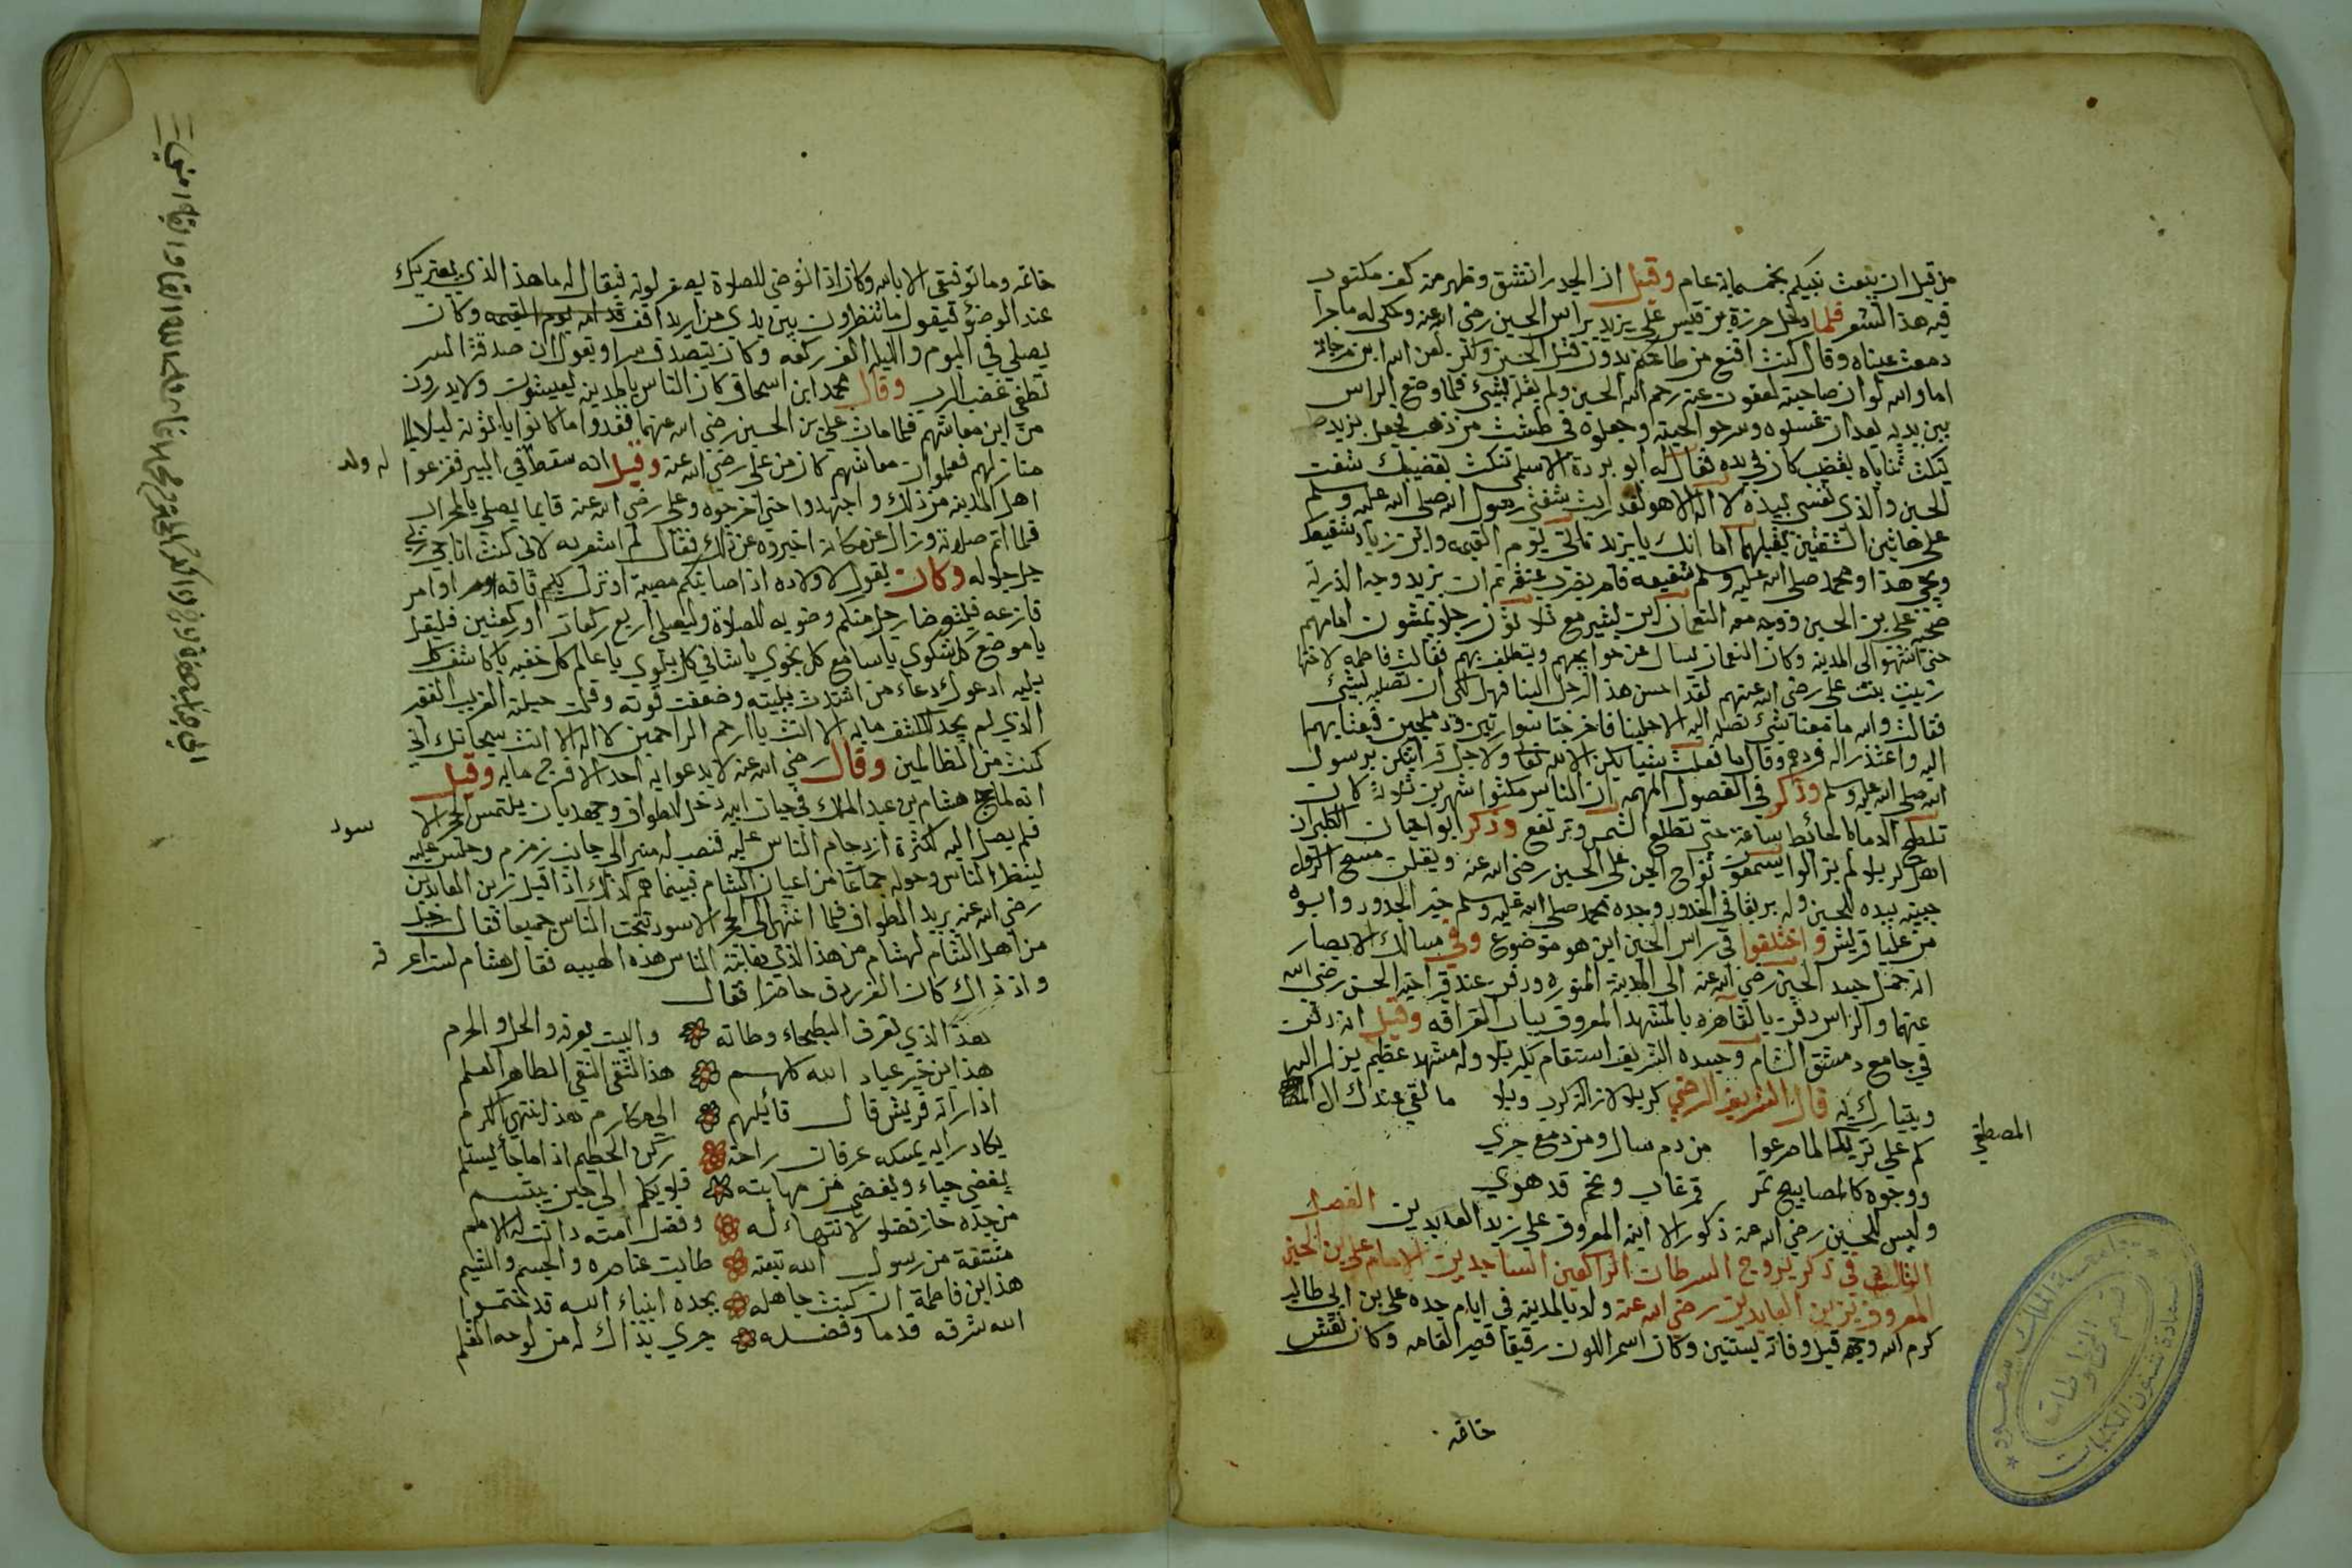 من قبل ان يبعث نبيكم بخمسماية عام وقيل ان الجدر انشق وظهر منه كف مكتوب
فيه هذا الشعر فلما دخل حرزة بن قيس على يزيد براس الحسين رضي الله عنه وحكى له ماجرا
دمعت عيناه وقال كنت اقنع من طاعتكم بدون قتل الحسين ولكن لعن الله ابن مرجانة
اما والله لو ان صاحبته لعفوت عنه رحم الله الحسين ولم يقله بشيئ فلما وضع الراس
بين يديه بعد ان غسلوه وسرحوا لحيته وجعلوه في طشت من ذهب فجعل يزيد
ينكث ثناياه بقضيب كان في يده فقال له ابو بردة الاسلمي تنكث بقضيبك شفت
الحسين والذي نفسي بيده لا اله الا هو لقد رايت شفتي رسول الله صلى الله عليه وسلم
على هاتين الشفتين يقبلهما اما انك يا يزيد تاتي يوم القيمه وابن زياد شفيعك
ويجي هذا ومحمد صلى الله عليه وسلم شفيعه فامر بضرب عنقه ثم ان يزيد وجه الذرية
صحبة علي بن الحسين ووجه معه النعمان ابن بشير مع ثلاثون رجلا يمشون امامهم
حتى انتهو الى المدينه وكان النعمان يسال عن حوايجهم ويتلطف بهم فقالت فاطمه لاختها
زينب بنت علي رضي الله عنهم لقد احسن هذا الرجل الينا فهل لكي ان تصليه بشيئ
فقالت والله ما معنا شيئ نصله اليه الا حلينا فاخرجتا سوارين ودملجين فبعثا بهما
اليه واعتذرا له فردهم وقال ما فعلت شيئا يكن الا لله تعا ولاجل قرابتكن برسول
الله صلى الله عليه وسلم وذكر في الفصول المهمه ان الناس مكثوا شهرين ثلاثة كانت
تلطخ الدما الحائط ساعة حتى تطلع الشمس وترتفع وذكر ابو اجيان الكلبي ان
اهل كربلا لم يزالوا يسمعون نواح الجن على الحسين رضي الله عنه ويقلن مسح الرسول
جبينه بيده للحسين وله بريقا في الخدود وجده محمد صلى الله عليه وسلم خير الجدود وابوه
من عليا قريش واختلفوا في راس الحسين اين هو موضوع وفي مسالك الابصار
انه حمل جسد الحسين رضي الله عنه الى المدينة المنوره ودفن عند قبر اخيه الحسن رضي الله
عنهما والراس دفن بالقاهره بالمشهد المعروف بباب القرافه وقيل انه دفن
في جامع دمشق الشام وجسده الشريف استقام بكربلا وله مشهد عظيم يزار اليه
ويتبارك به قال الشريف الرضي كربلا لازالت كرب وبلا ما لقي عندك ال
المصطفى
كم على تربك لما صرعوا من دم سال ومن دمع جري
ووجوه كالمصابيح تمر قمر غاب ونجم قد هوي
وليس للحسين رضي الله عنه ذكور الا ابنه المعروف علي زين العابدين الفصل
الثالث في ذكر بروج السرطان الراكعين الساجدين الامام علي بن الحسين
المعروف بزين العابدين رضي الله عنه ولد بالمدينه في ايام جده علي بن ابي طالب
كرم الله وجهه قبل وفاته بسنتين وكان اسمر اللون رقيقا قصير القامه وكان نقش
خاتمه
خاتمه وما توفيقي الا بالله وكان اذا توضى للصلاة يصفر لونه فيقال له ما هذا الذي يعتريك
عند الوضوء فيقول ما تنظرون بين يدي من اريد اقف قدامه يوم القيمه وكان
يصلي في اليوم والليله الف ركعه وكان يتصدق سرا ويقول ان صدقة السر
تطفي غضب الرب وقال محمد ابن اسحاق كان الناس بالمدينه يعيشون ولا يدرون
من اين معاشهم فلما مات علي بن الحسين رضي الله عنهما فقدوا ما كانوا ياتونه ليلا الى
منازلهم فعلموا ان معاشهم كان من علي رضي الله عنه وقيل انه سقط في البير ففزعوا
له ولد
اهل المدينه من ذلك واجتهدوا حتى اخرجوه وعلي رضي الله عنه قايما يصلي بالمحراب
فلما اتم صلاته وزال عن مكانه اخبروه عن ذلك فقال لم اشعر به لاني كنت اناجي ربي
جل جلاله وكان يقول لاولاده اذا اصابتكم مصيبة او نزل بكم فاقه او امر
قارعه فليتوضا رجل منكم وضويه للصلاة وليصلي اربع ركعات او ركعتين فليقل
يا موضع كل شكوي يا سامع كل نجوي يا شافي كل بلوي يا عالم كل خفيه يا كاشف كل
بليه ادعوك دعاء من اشتدت بليته وضعفت قوته وقلت حيلته الغريب الفقير
الذي لم يجد لكشف مابه الا انت يا ارحم الراحمين لا اله الا انت سبحانك اني
كنت من الظالمين وقال رضي الله عنه لا يدعوا به احد الا فرج مابه وقيل
انه لما حج هشام بن عبد الملك في حيات ابيه دخل للطواف وجهد بان يلتمس الحجر الا
سود
فلم يصل اليه لكثرة ازدحام الناس عليه فنصب له منبر الى جانب زمزم وجلس عليه
لينظر الناس وحوله جماعا من اعيان الشام فبينما هم كذلك اذا اقبل زين العابدين
رضي الله عنه يريد الطواف فلما انتهى الى الحجر الاسود تنحت الناس جميعا فقال رجل
من اهل الشام لهشام من هذا الذي هابته الناس هذه الهيبه فقال هشام لست اعر
فه
واذ ذاك كان الفرزدق حاضرا فقال
هذا الذي تعرف البطحاء وطاته والبيت يعرفه والحل والحرم
هذا ابن خير عباد الله كلهم هذا التقي النقي الطاهر العلم
اذا راته قريش قال قائلهم الى مكارم هذا ينتهي الكرم
يكاد رايه يمسكه عرفان راحته ركن الحطيم اذا ما جأ يستلم
يغضي حياء ويغضي من مهابته فلا يكلم الى حين يبتسم
من جده حاز فضلا لا انتهاء له وفضل امته دانت له الامم
منشقة من رسول الله نبعته طابت عناصره والجسم والشيم
هذا ابن فاطمة ان كنت جاهله بجده انبياء الله قد ختموا
الله شرفه قدما وفضله جري بذاك له من لوحه القلم
جامعة الملك سعود
عمادة شئون المكتبات
قسم المخطوطات